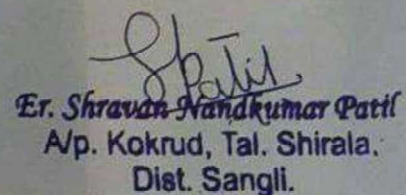 SPatil
Er. Shravan Nandkumar Patil
A/p. Kokrud, Tal. Shirala.
Dist. Sangli.